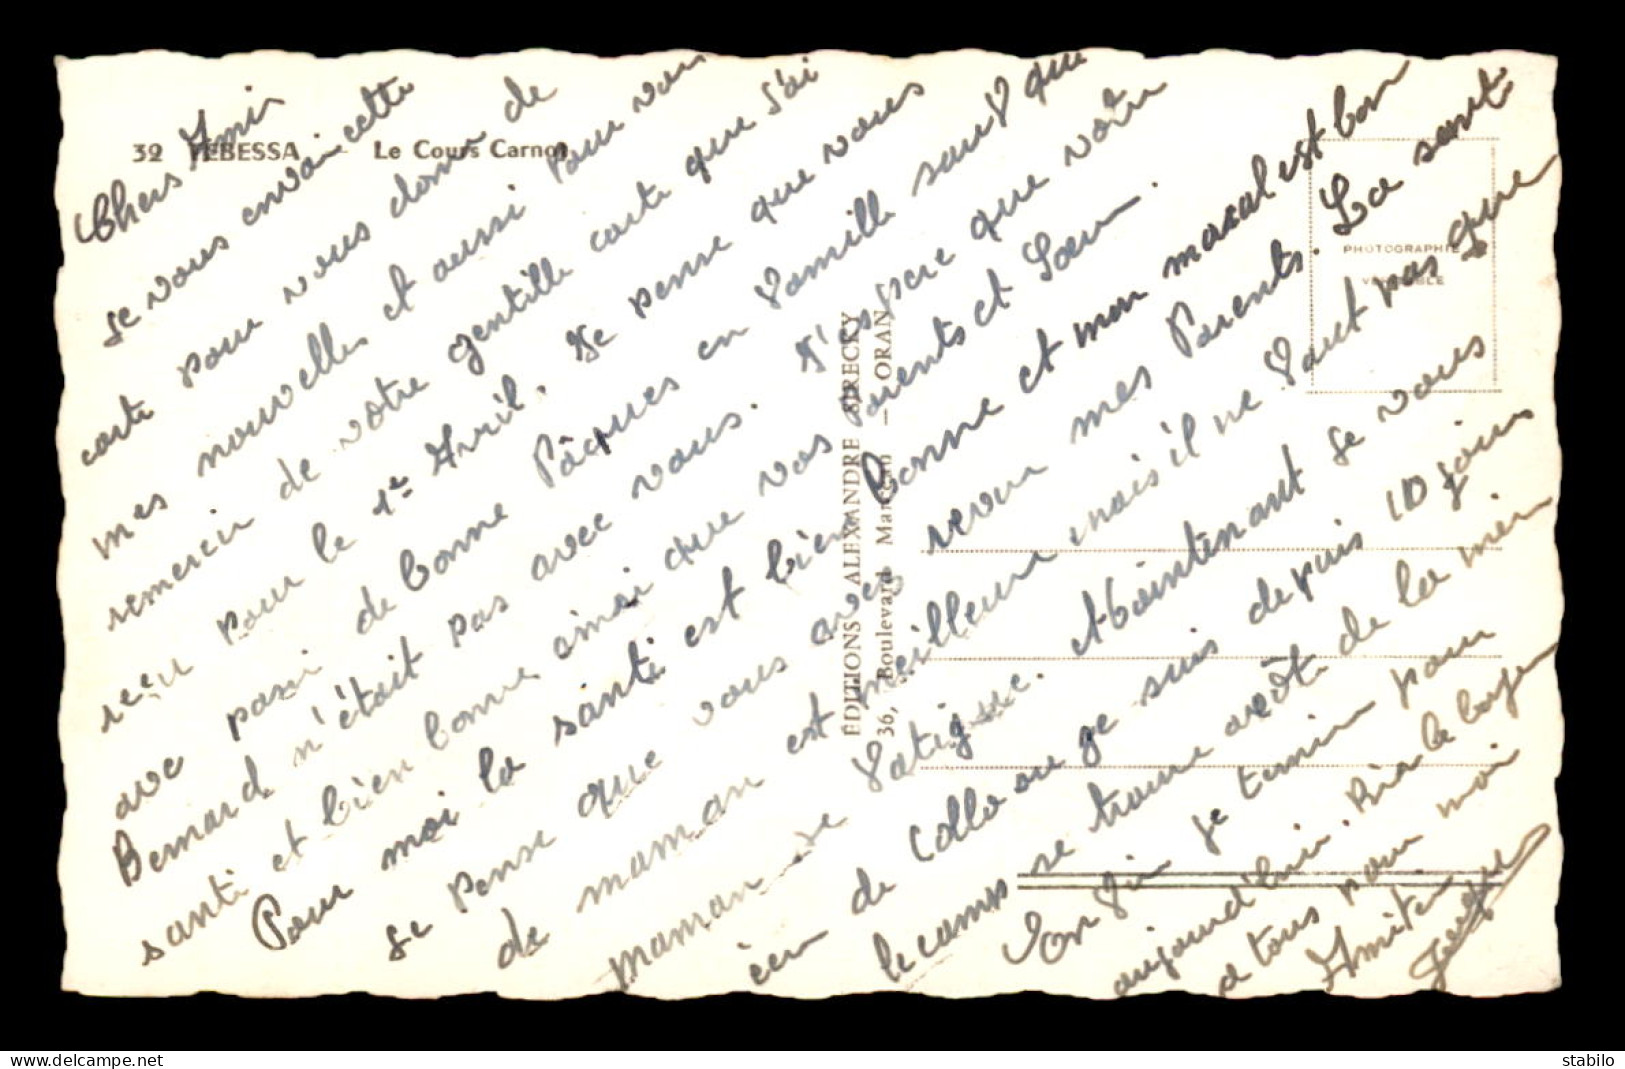 32 TEBESSA — Le Cours Carnot
Chers Amis
Je vous envoi cette
carte pour vous donner de
mes nouvelles et aussi pour vous
remercier de votre gentille carte que j'ai
reçu pour le 1er Avril. Je pense que vous
avez passé de bonne Pâques en famille sauf que
Bernard n'était pas avec vous. J'espère que votre
santé et bien bonne ainsi que vos Parents et Sœur.
Pour moi la santé est bien bonne et mon moral est bon
Je pense que vous avez revu mes Parents. La santé
de maman est meilleur mais il ne faut pas que
maman se fatigue. Maintenant je vous
écri de Collo ou je suis depuis 10 jours
le camps se trouve a côté de la mer
En fin je termine pour
aujourd'hui. Bien le bonjour
a tous pour moi
Amitiés
ÉDITIONS ALEXANDRE SIRECKY
36, Boulevard — ORAN
PHOTOGRAPHIE
VÉRITABLE
stabilo